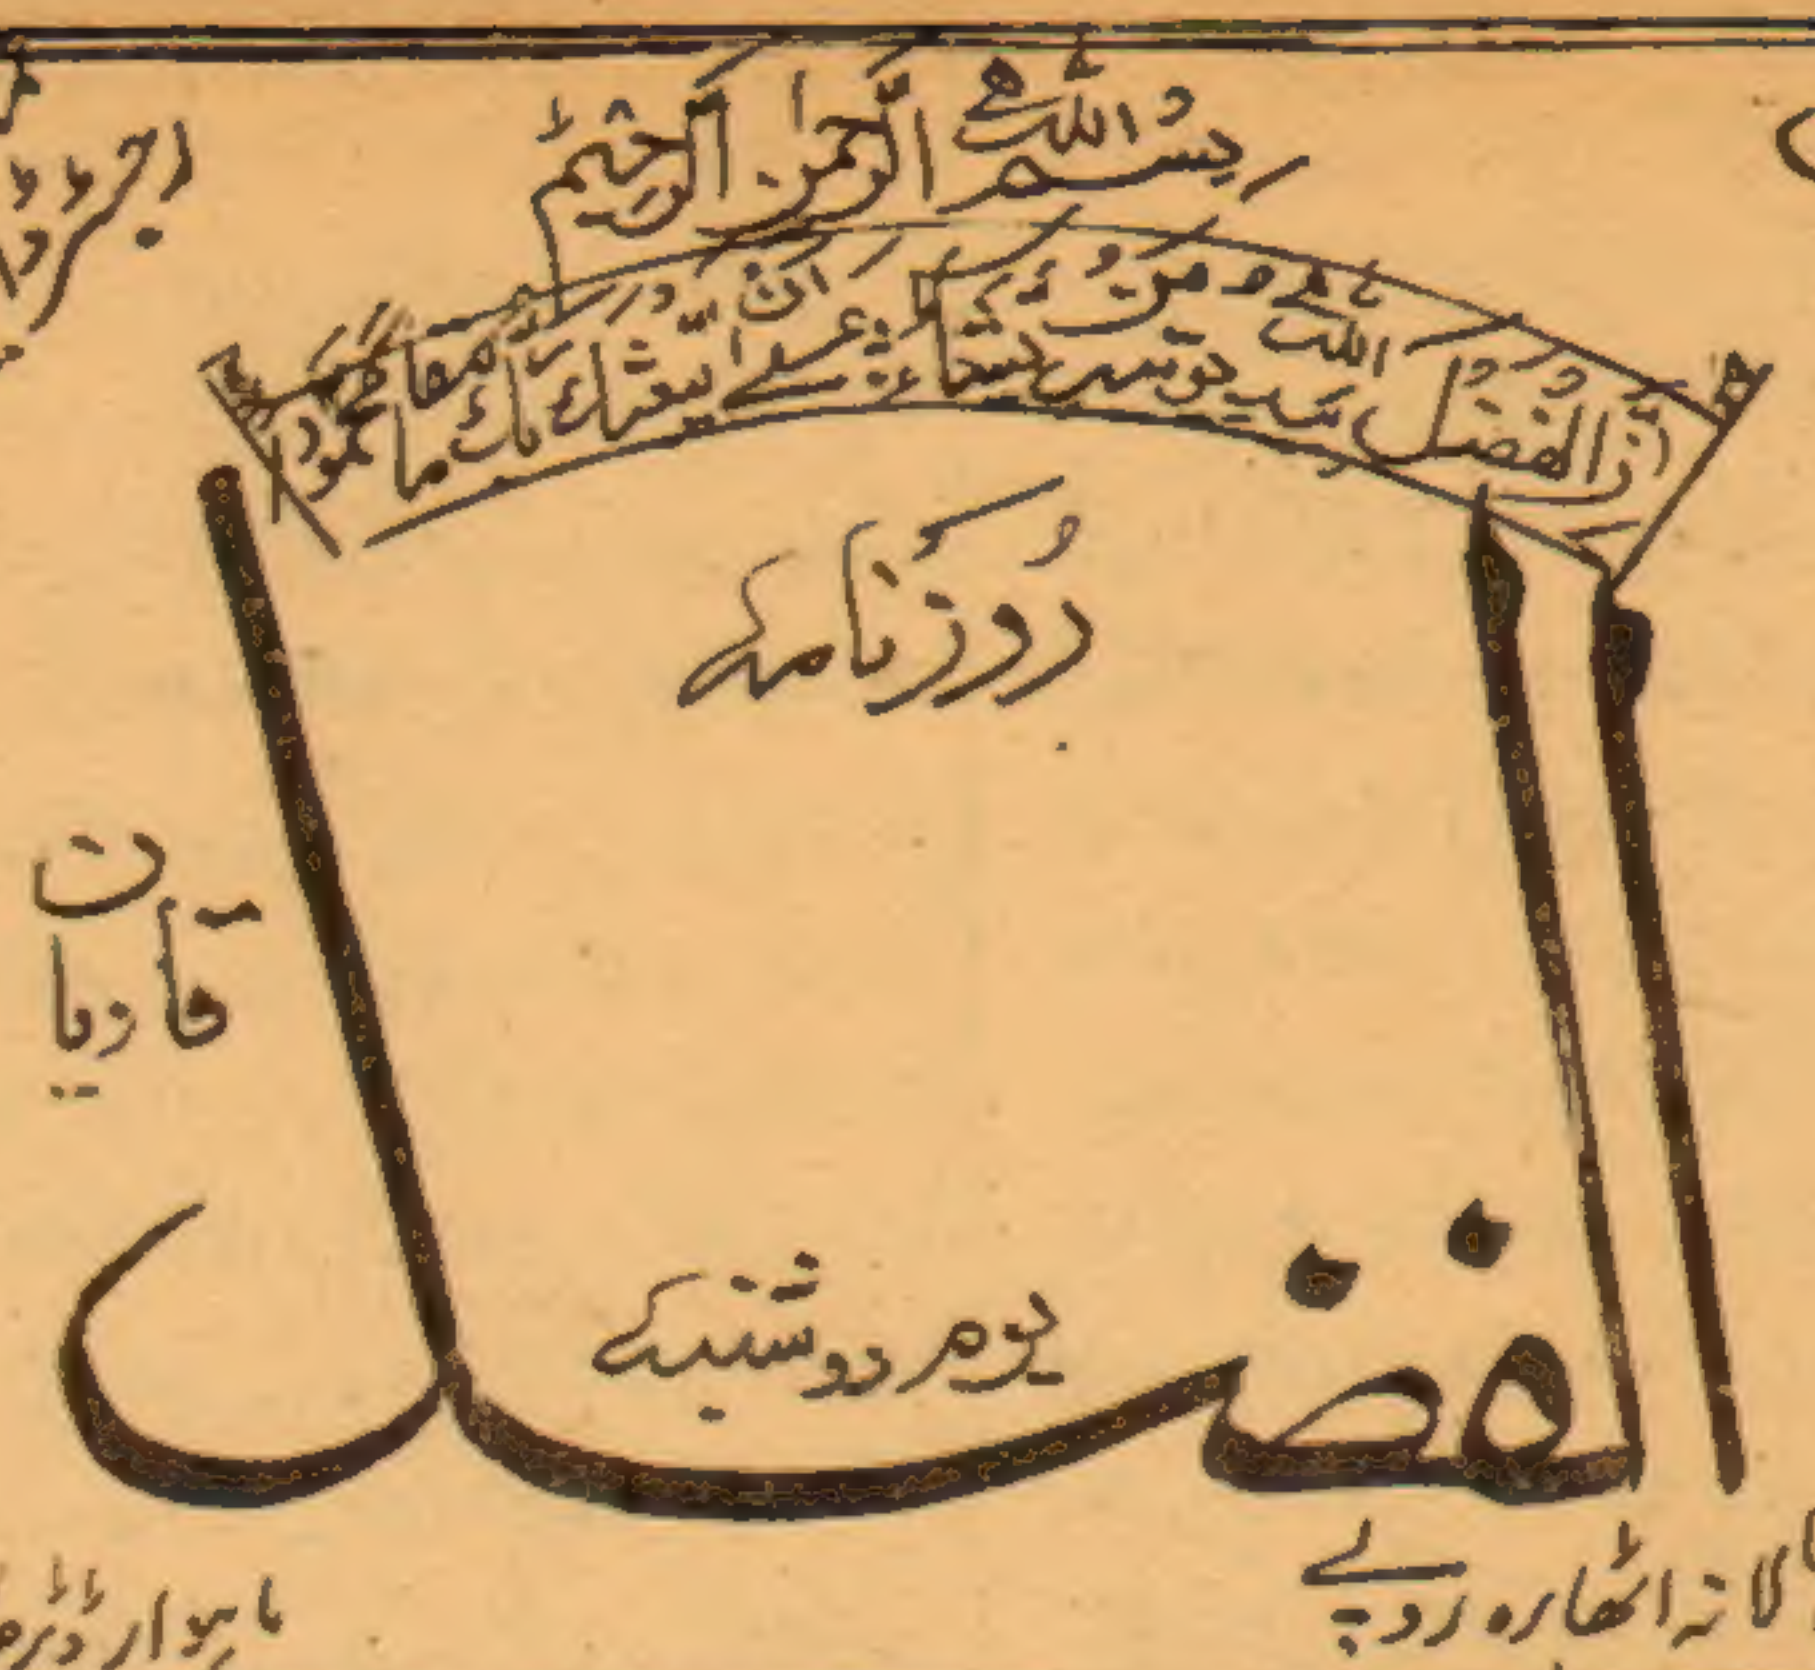 بِسْمِ اللّٰهِ الرَّحْمٰنِ الرَّحِيْمِ
اِنَّ الْفَضْلَ بِيَدِ اللّٰهِ يُؤْتِيْهِ مَنْ يَّشَآءُ عَسٰى اَنْ يَّبْعَثَكَ رَبُّكَ مَقَامًا مَّحْمُوْدًا
رُوزنَامہ
قادیان
الفضل
یوم دوشنبہ
سالانہ اٹھارہ روپے
ماہوار